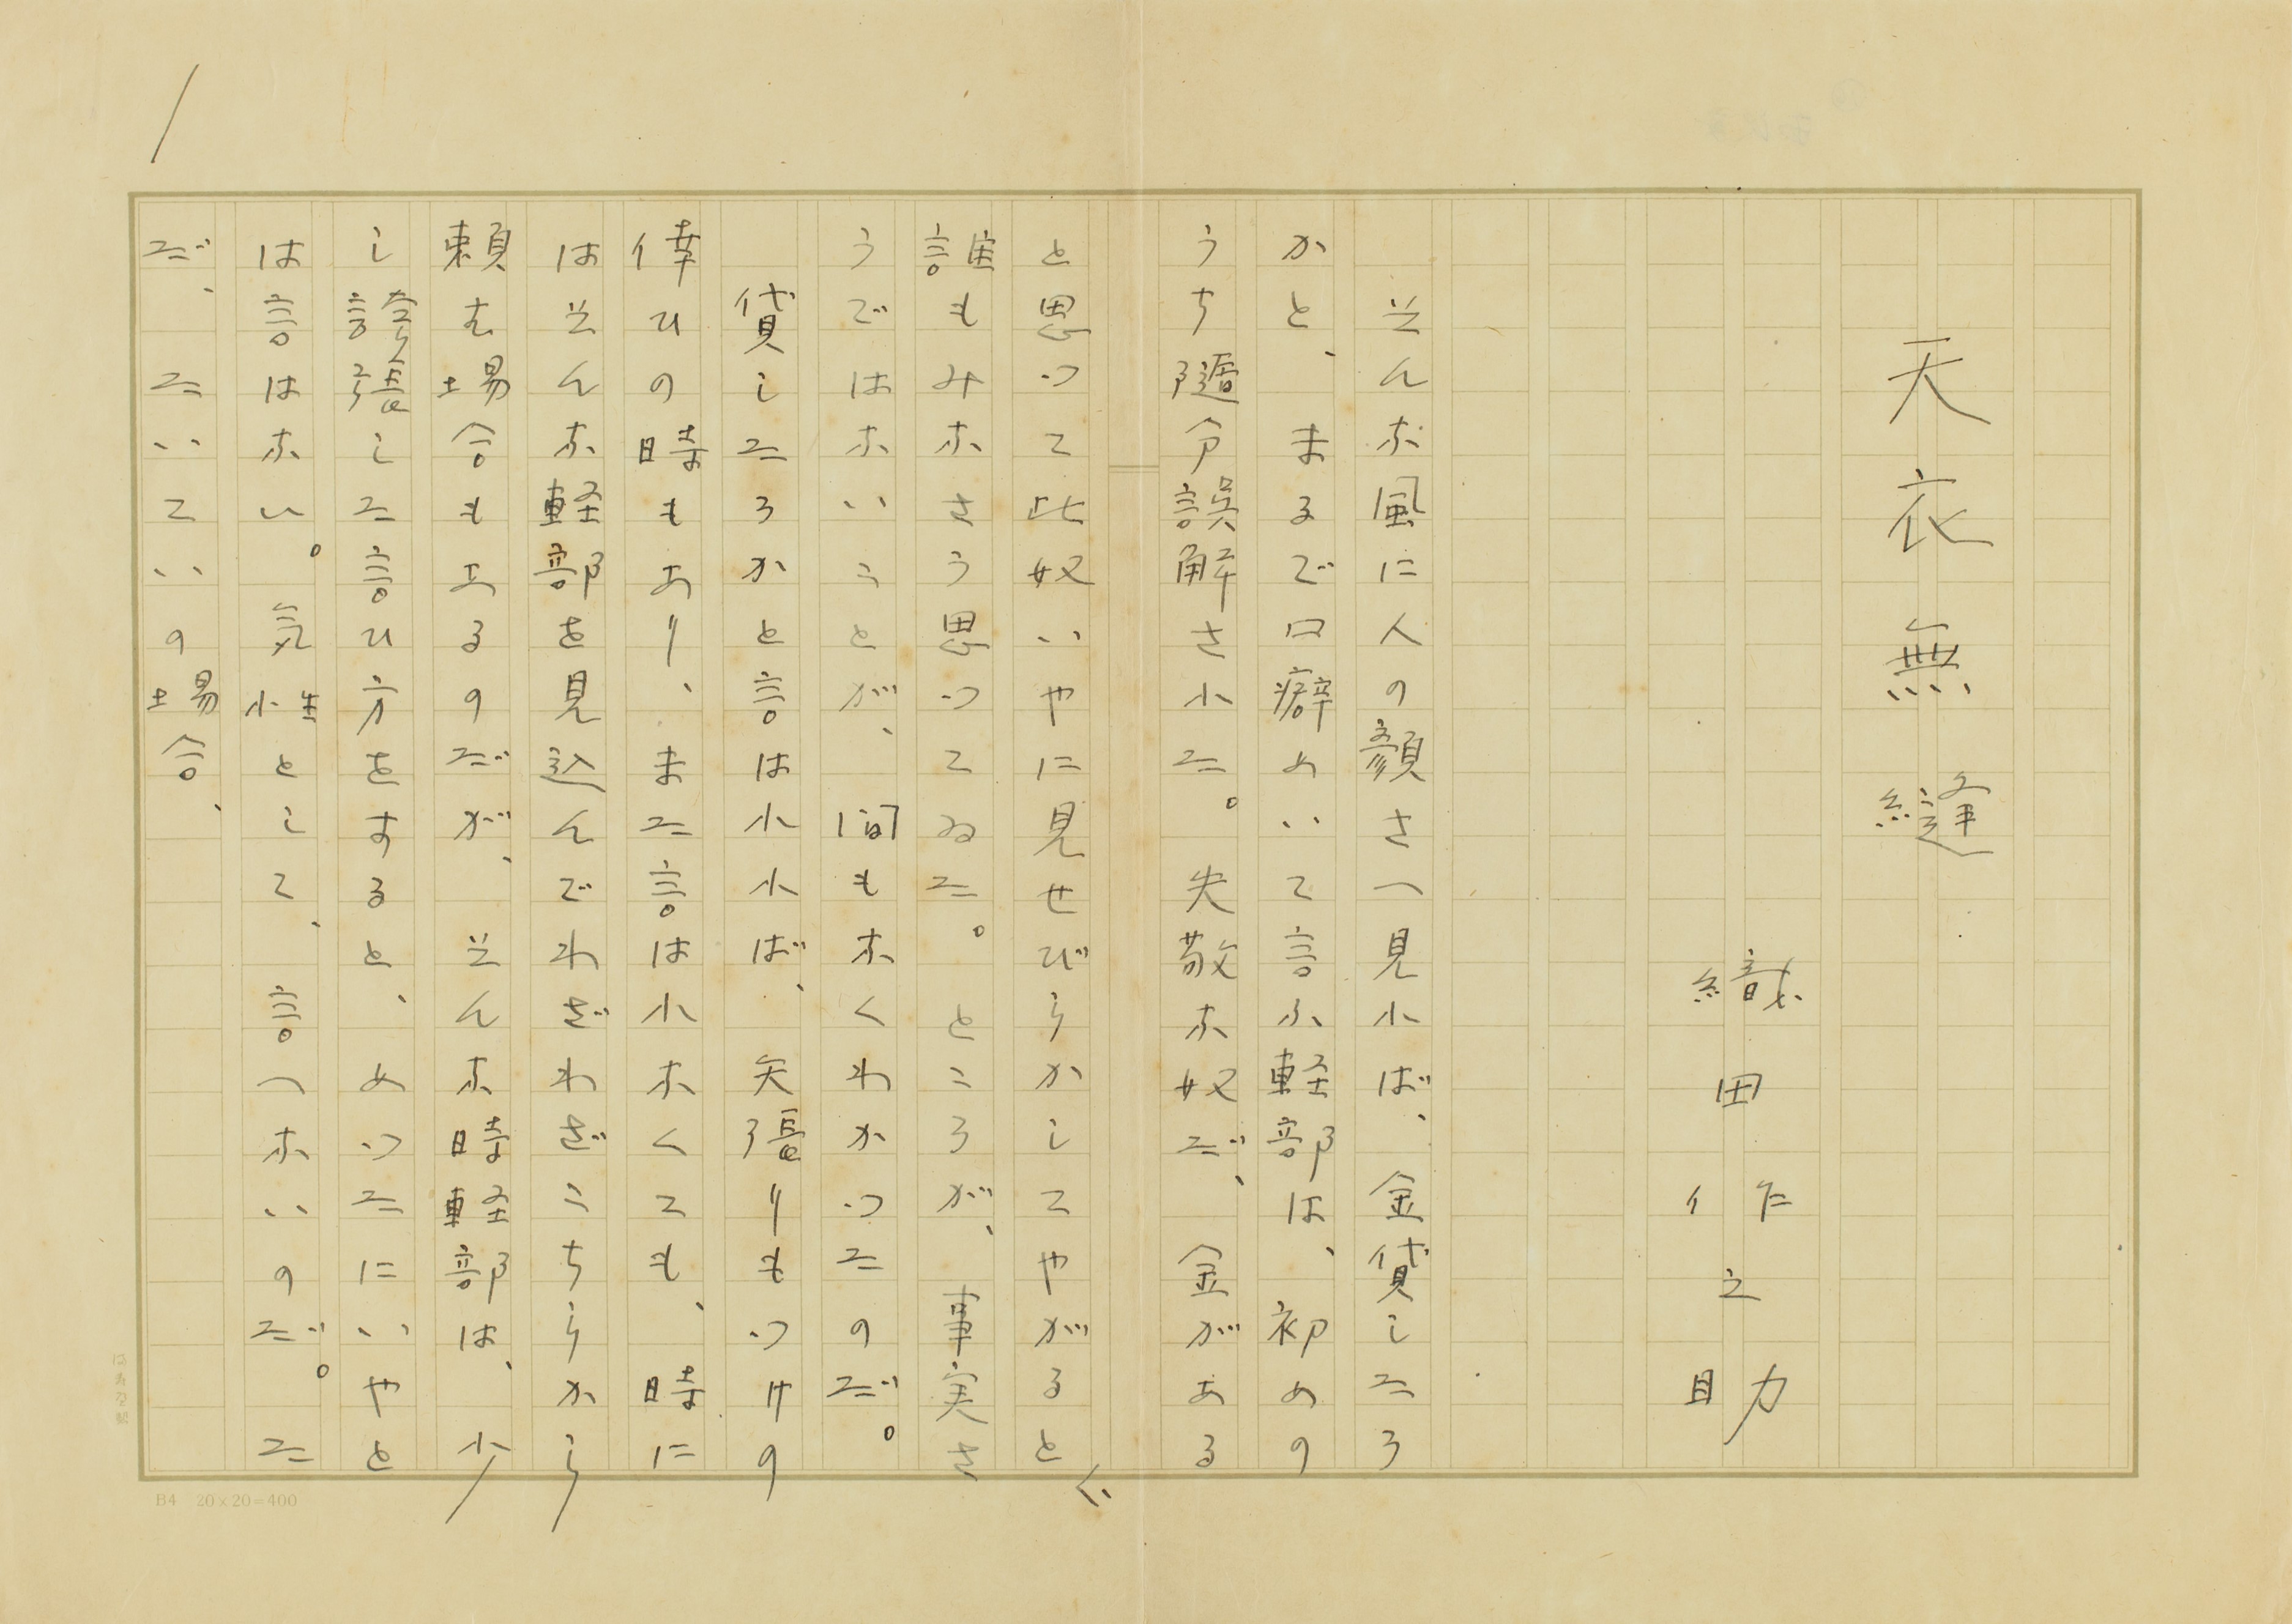 天衣無縫
織田作之助
そんな風に人の顔さへ見れば、金貸したろ
かと、まるで口癖めいて言ふ軽部は、初めの
うち随分誤解された。失敬な奴だ、金がある
と思つて此奴いやに見せびらかしてやがると、
誰もみなさう思つてゐた。ところが、事実さ
うではないことが、間もなくわかつたのだ。
貸したろかと言はれれば、矢張りもつけの
倖ひの時もあり、また言はれなくても、時に
はそんな軽部を見込んでわざわざこちらから
頼む場合もあるのだが、そんな時軽部は、少
し誇張した言ひ方をすると、めつたにいやと
は言はない。気性として、言へないのだ。た
だ、たいていの場合、
B4 20×20=400